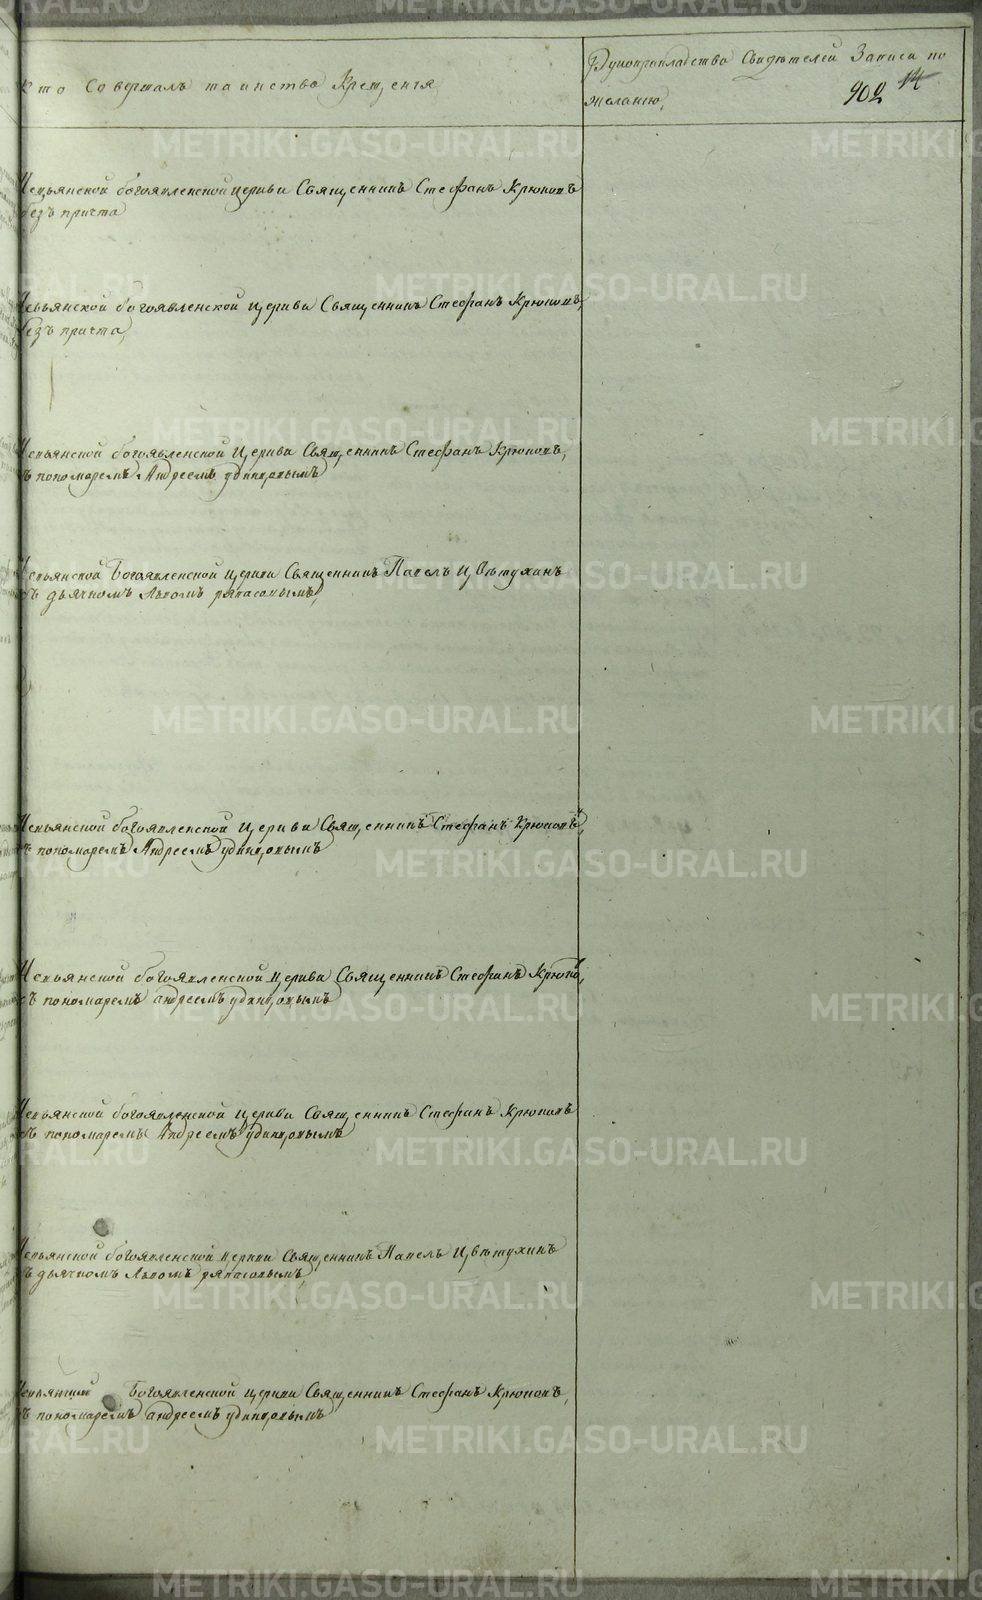 Кто Совершалъ таинство Крещенія
Рукоприкладство Свидѣтелей Записи по
желанію,
902 14
Невьянской богоявленской церкви Священникъ Стефанъ Крюковъ
безъ причта
Невьянской богоявленской церкви Священникъ Стефанъ Крюковъ,
безъ причта,
Невьянской богоявленской церкви Священникъ Стефанъ Крюковъ,
съ пономаремъ Андреемъ удинцовымъ
Невьянской Богоявленской церкви Священникъ Павелъ Цвѣтухинъ
съ дьячкомъ Львомъ ряпасовымъ,
Невьянской богоявленской церкви Священникъ Стефанъ Крюковъ,
съ пономаремъ Андреемъ удинцовымъ
Невьянской богоявленской церкви Священникъ Стефанъ Крюковъ,
съ пономаремъ андреемъ удинцовымъ
Невьянской богоявленской церкви Священникъ Стефанъ Крюковъ
съ пономаремъ Андреемъ удинцовымъ
Невьянской богоявленской церкви Священникъ Павелъ Цвѣтухинъ
съ дьячкомъ Львомъ ряпасовымъ,
Невьянской Богоявленской церкви Священникъ Стефанъ Крюковъ,
съ пономаремъ андреемъ удинцовымъ
METRIKI.GASO-URAL.RU